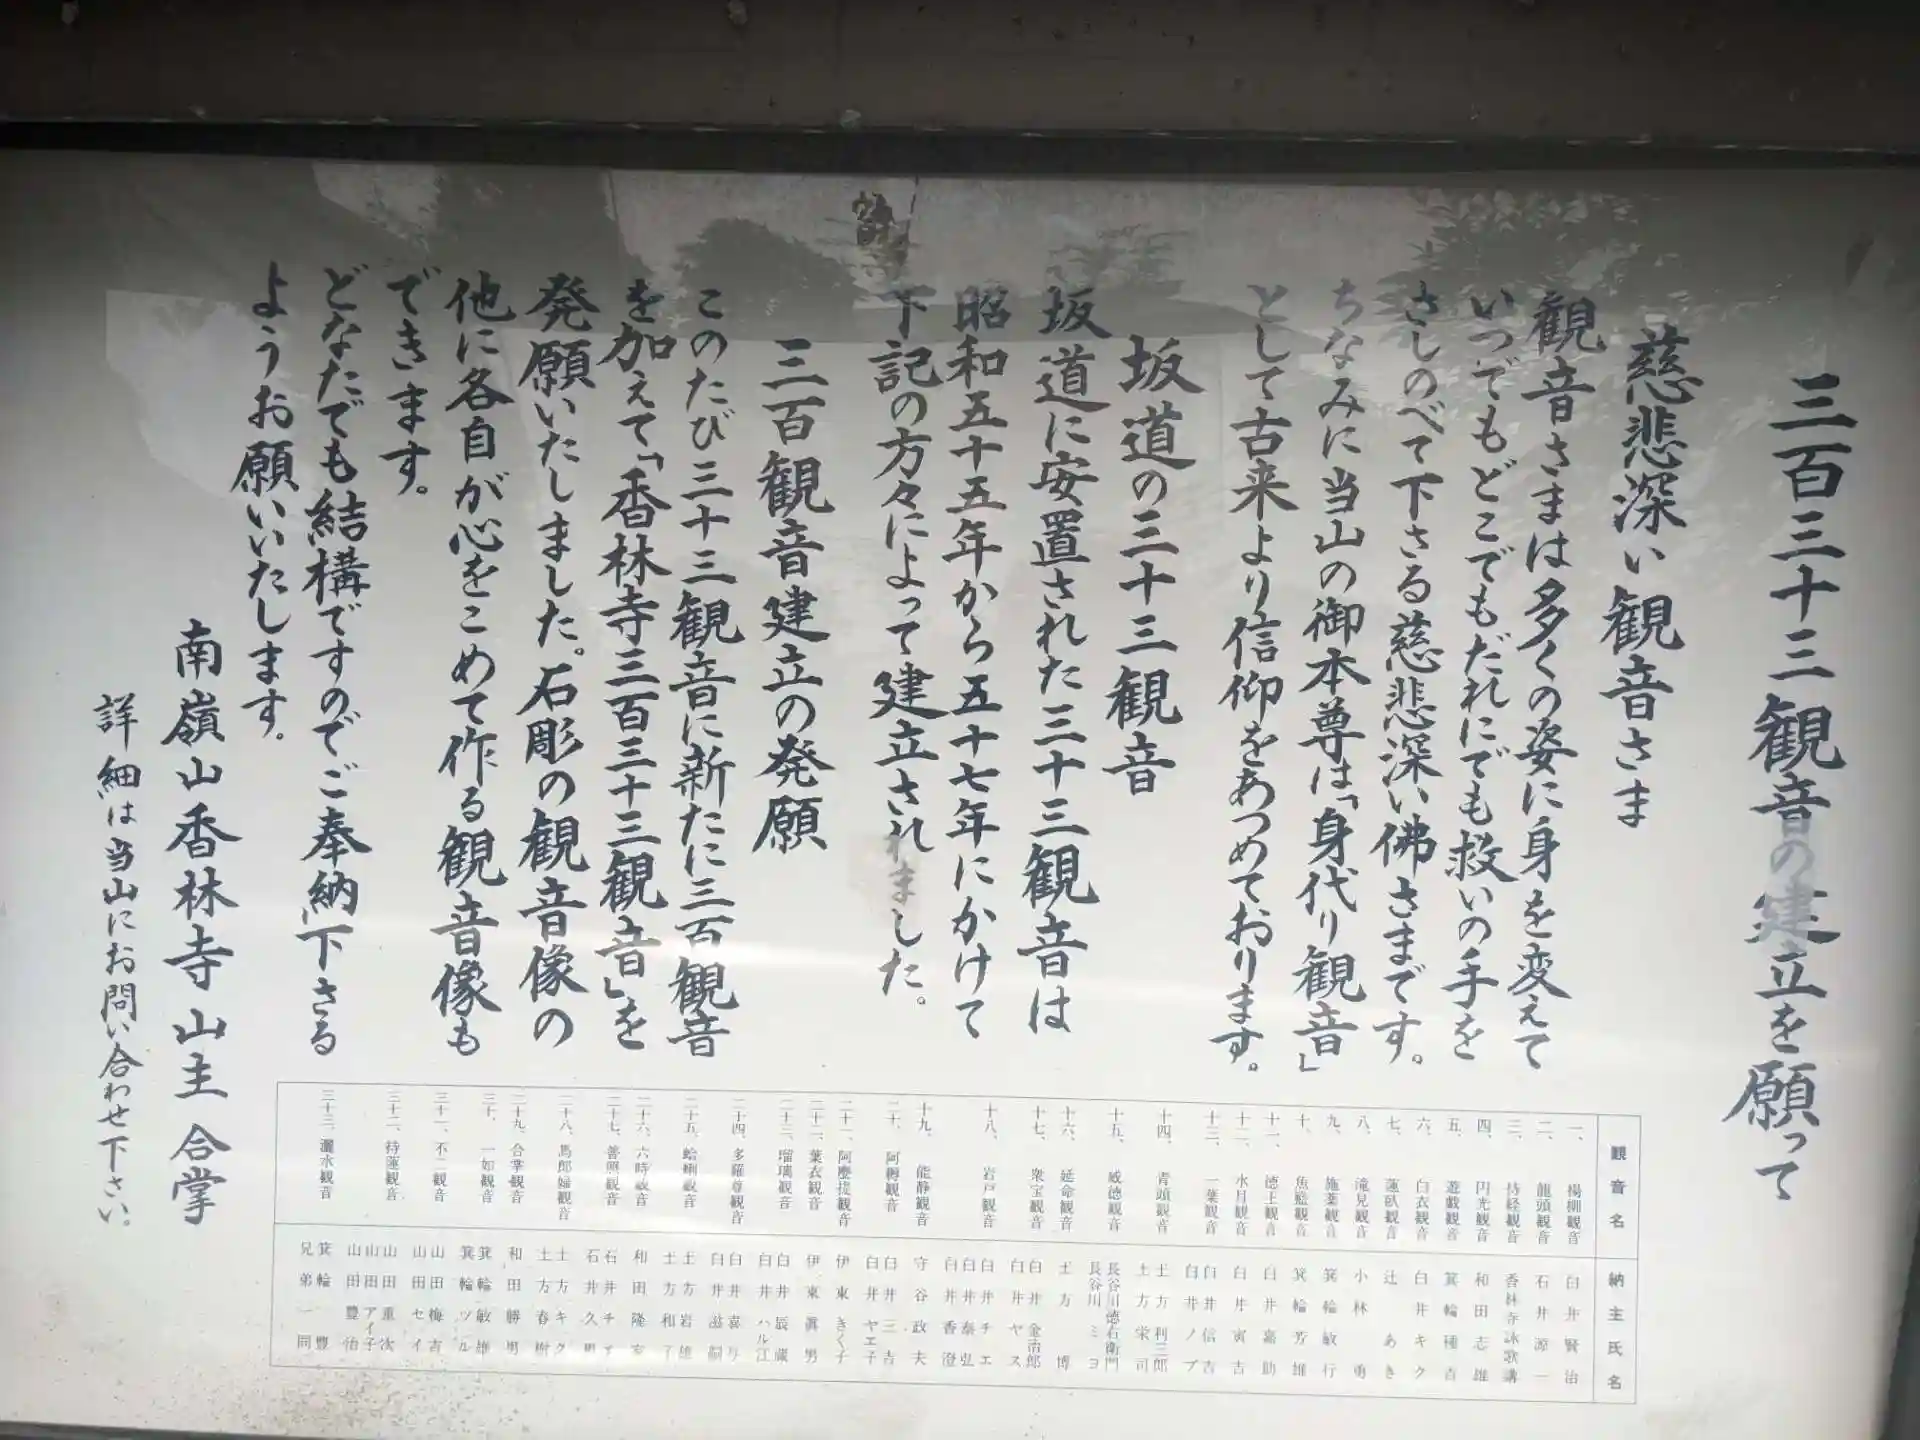 三百三十三観音の建立を願って
慈悲深い観音さま
観音さまは多くの姿に身を変えて
いつでもどこでもだれにでも救いの手を
さしのべて下さる慈悲深い佛さまです。
ちなみに当山の御本尊は「身代り観音」
として古来より信仰をあつめております。
坂道の三十三観音
坂道に安置された三十三観音は
昭和五十五年から五十七年にかけて
下記の方々によって建立されました。
三百観音建立の発願
このたび三十三観音に新たに三百観音
を加えて「香林寺三百三十三観音」を
発願いたしました。石彫の観音像の
他に各自が心をこめて作る観音像も
できます。
どなたでも結構ですのでご奉納下さる
ようお願いいたします。
南嶺山香林寺山主 合掌
詳細は当山にお問い合わせ下さい。
観音名 納主氏名
一、楊柳観音 臼井賢治
二、龍頭観音 石井源一
三、持経観音 香林寺詠歌講
四、円光観音 和田志雄
五、遊戯観音 箕輪種吉
六、白衣観音 臼井キク
七、蓮臥観音 辻あき
八、滝見観音 小林勇
九、施薬観音 箕輪敏行
十、魚籃観音 箕輪芳雄
十一、徳王観音 臼井嘉助
十二、水月観音 臼井寅吉
十三、一葉観音 臼井信吉
臼井ノブ
十四、青頭観音 土方利三郎
土方栄司
十五、威徳観音 長谷川徳右衛門
長谷川ミヨ
十六、延命観音 土方博
十七、衆宝観音 臼井金治郎
臼井ヤス
十八、岩戸観音 臼井チエ
臼井泰弘
臼井香澄
十九、能静観音 守谷政夫
二十、阿耨観音 臼井三吉
臼井ヤエ子
二十一、阿麽提観音 伊東きく子
二十二、葉衣観音 伊東眞男
二十三、瑠璃観音 臼井辰蔵
臼井ハル江
二十四、多羅尊観音 臼井喜与
臼井滋嗣
二十五、蛤蜊観音 土方岩雄
土方和子
二十六、六時観音 和田隆家
二十七、普照観音 石井チイ
石井久男
二十八、馬郎婦観音 土方キク
土方春樹
二十九、合掌観音 和田勝男
三十、一如観音 箕輪敏雄
箕輪ツル
三十一、不二観音 山田梅吉
山田セイ
三十二、持蓮観音 山田重次
山田アイ子
山田豊治
三十三、灑水観音 箕輪豊
兄弟一同